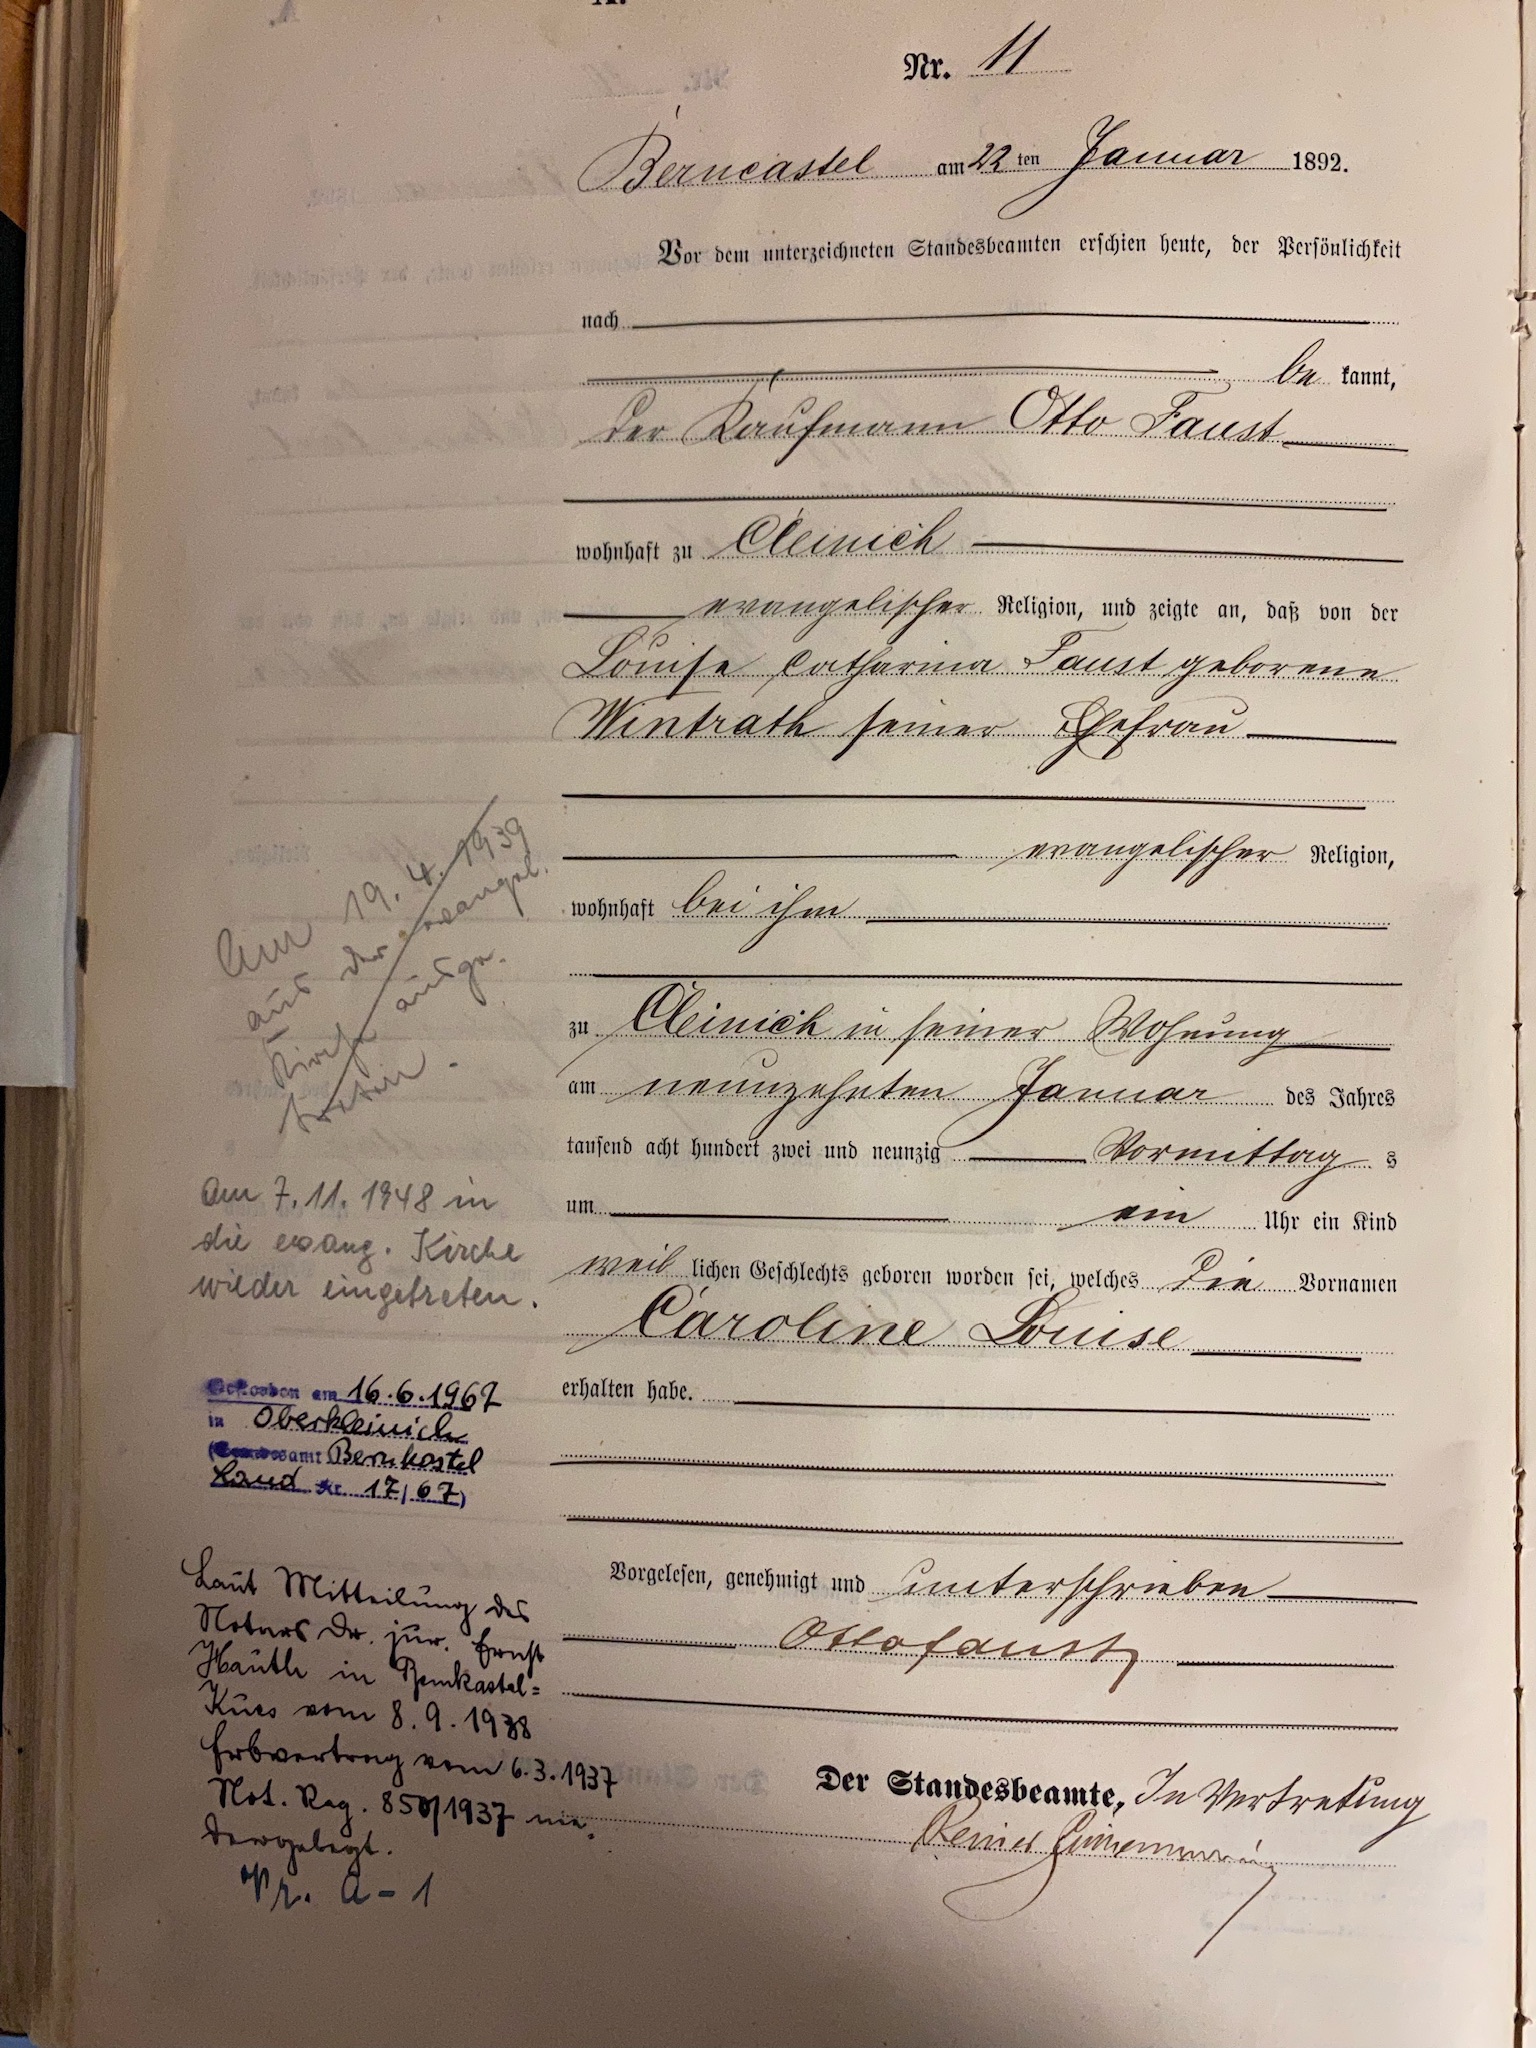 Nr. 11
Berncastel am 22 ten Januar 1892.
Vor dem unterzeichneten Standesbeamten erschien heute, der Persönlichkeit
nach
be kannt,
der Kaufmann Otto Faust
wohnhaft zu Cleinich
evangelischer Religion, und zeigte an, daß von der
Louise Catharina Faust geborene
Wintrath seiner Ehefrau
evangelischer Religion,
wohnhaft bei ihm
zu Cleinich in seiner Wohnung
am neunzehnten Januar des Jahres
tausend acht hundert zwei und neunzig Vormittag s
um ein Uhr ein Kind
weib lichen Geschlechts geboren worden sei, welches die Vornamen
Caroline Louise
erhalten habe.
Vorgelesen, genehmigt und unterschrieben
Otto Faust
Der Standesbeamte, In Vertretung
Am 19. 4. 1939
aus der evangel.
Kirche ausge-
treten.
Am 7. 11. 1948 in
die evang. Kirche
wieder eingetreten.
Gestorben am 16.6.1967
in Oberkleinich
(Standesamt Bernkastel
Land Nr. 17/67)
Laut Mitteilung des
Notars Dr. jur. Ernst
in Bernkastel=
Kues vom 8. 9. 1938
Erbvertrag vom 6.3.1937
Not. Reg. 850/1937 nie=
dergelegt.
A - 1